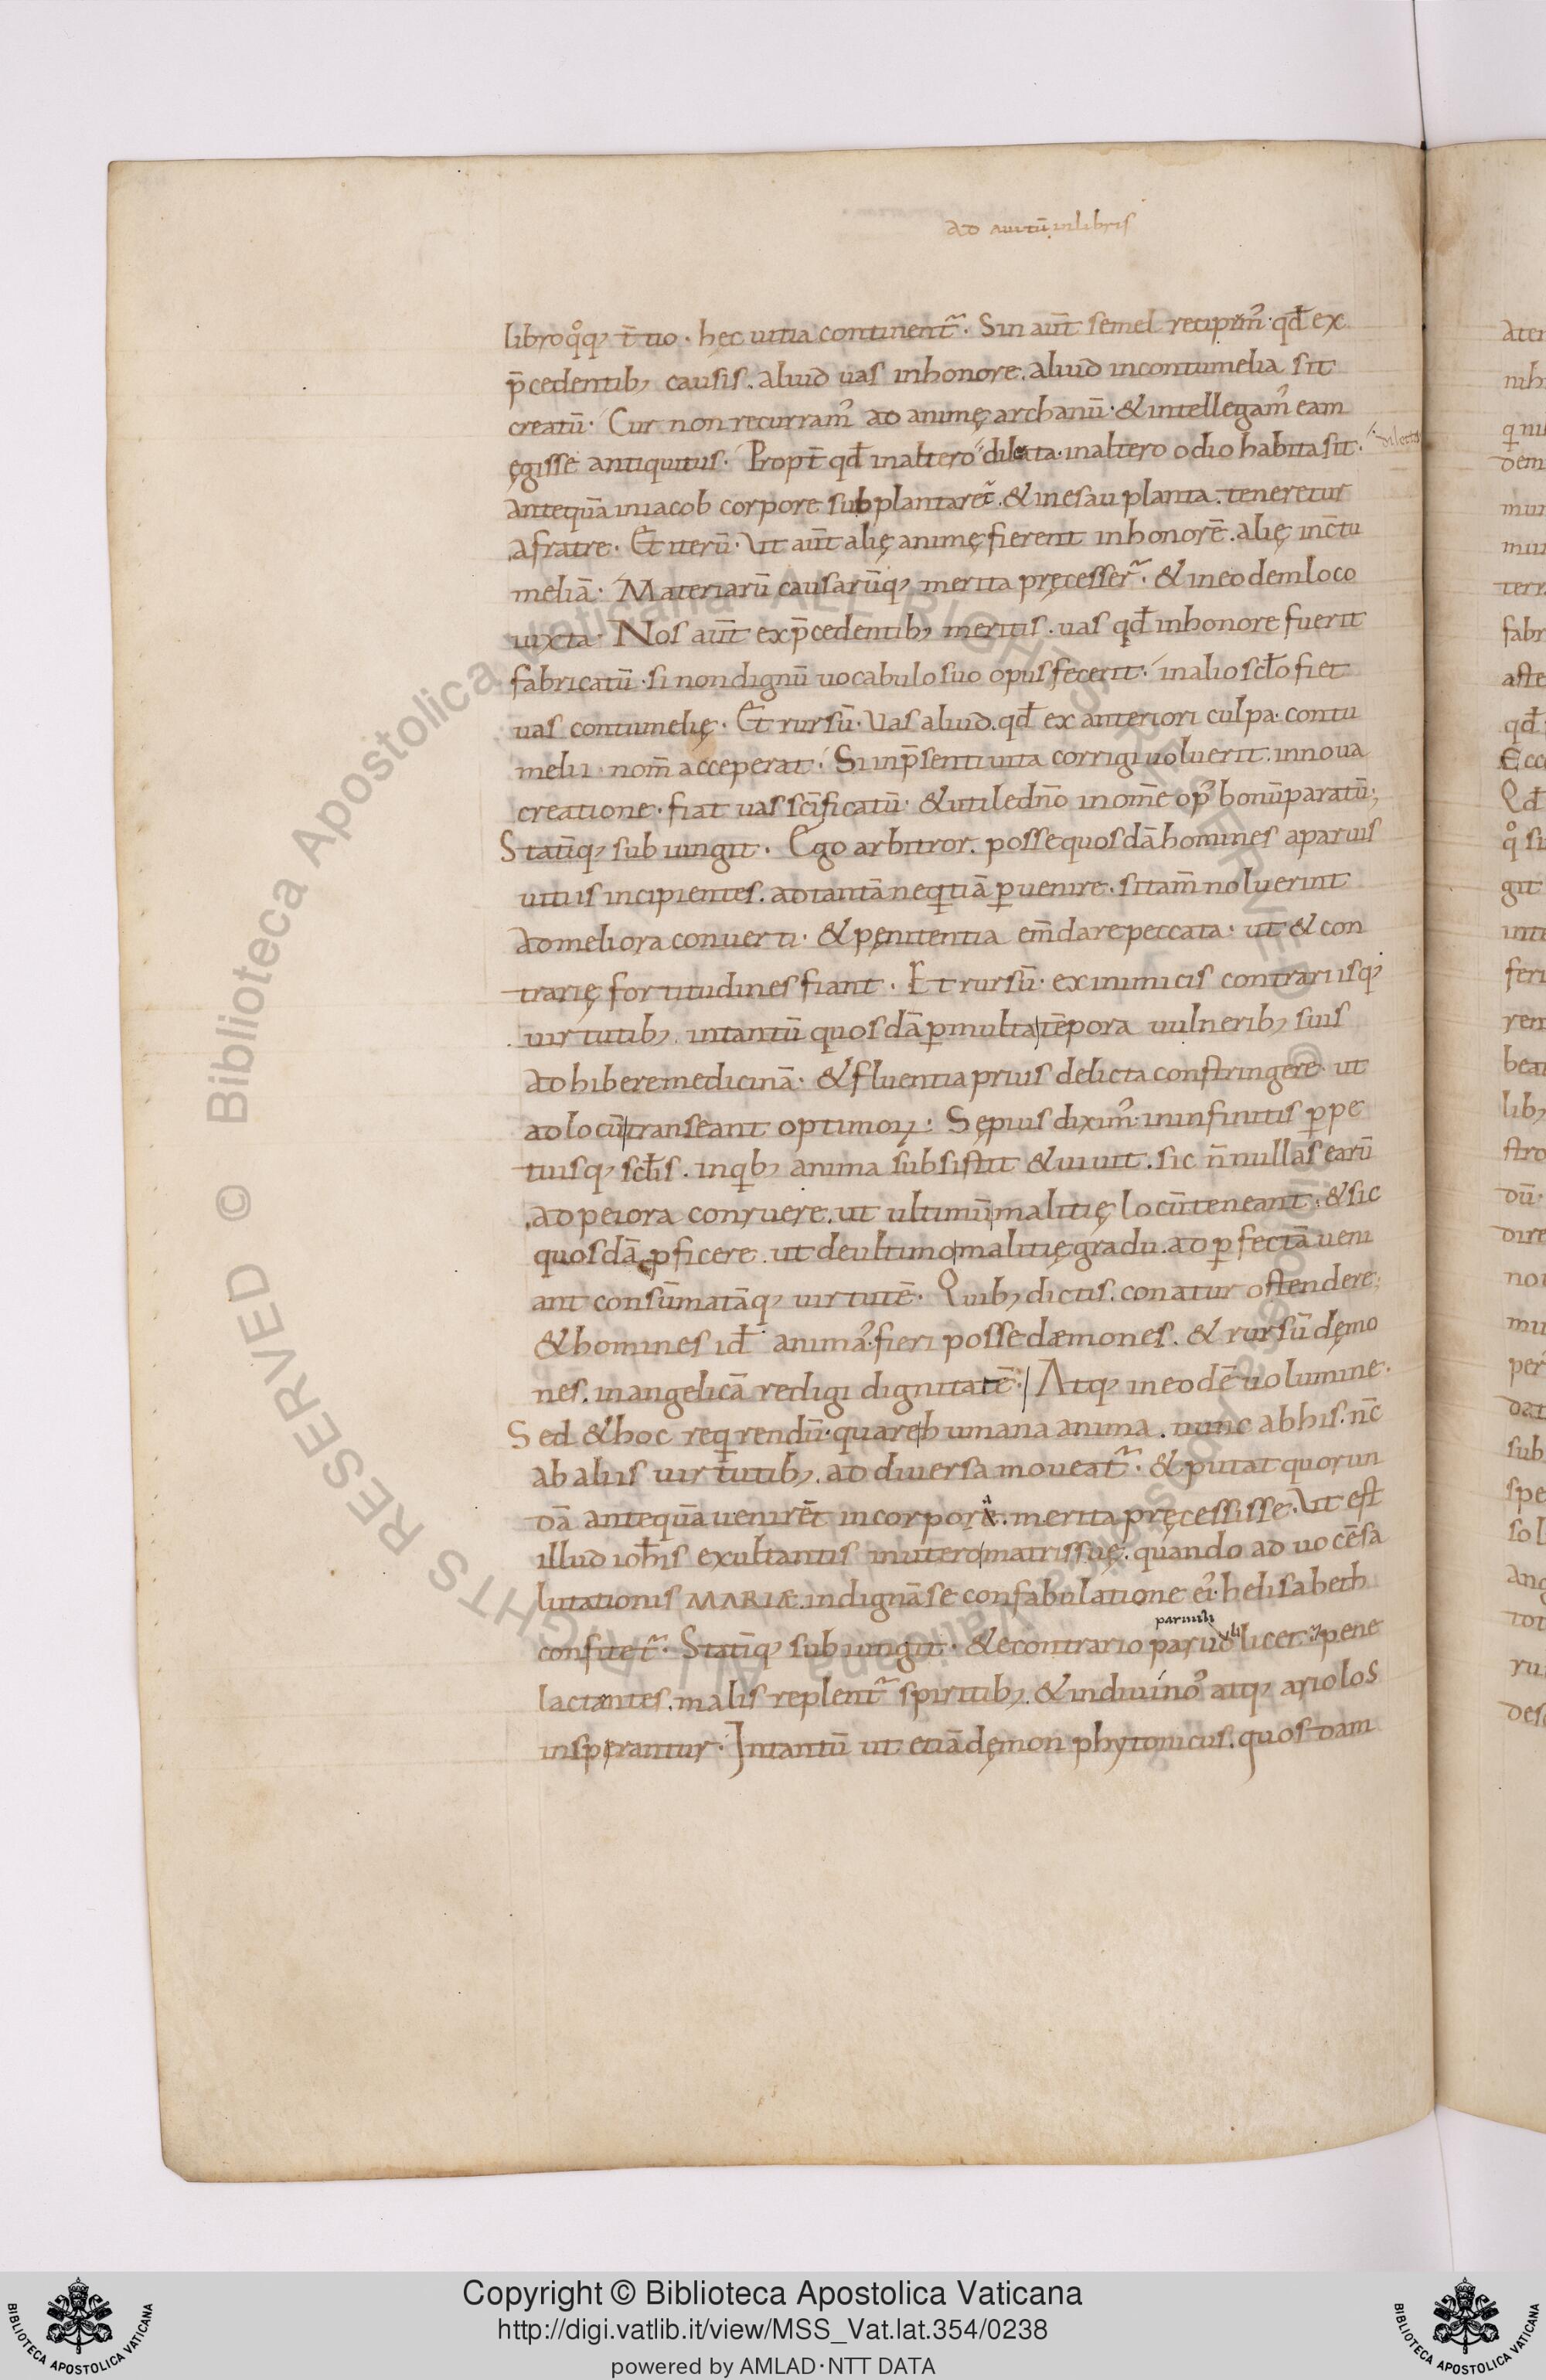 ad auitū in libris
libro qͦq; t̄tio · hęc uitia continent᷒ · Sin aut̄ semel recipim᷒ · qđ ex
p̄cedentib; causis . aliud uas in honore . aliud in contumelia sit
creatū · Cur non recurram᷒ ad animę archanū · & intellegam᷒ eam
ęgisse antiquitus · Propt̄ qđ in altero dilecta · in altero odio habita sit ·
antequā in iacob corpore subplantaret᷒ . & in esau planta . teneretur
a fratre · Et iterū · Ut aut̄ alię animę fierent in honorē . alię in c̄tu
meliā · Materiarū causarūq; merita pręcesser᷒ · & in eodem loco
iuxta · Nos aut̄ ex p̄cedentib; meritis . uas qđ in honore fuerit
fabricatū · si non dignū uocabulo suo opus fecerit · in alio scło fiet
uas contumelię · Et rursū · Uas aliud . qđ ex anteriori culpa · contu
melii · nom̄ acceperat · Si in p̄senti uita corrigi uoluerit . in noua
creatione · fiat uas sc̄ificatū · & utile dn̄o in om̄e op᷒ bonū paratū ;
Statīq; subiungit · Ego arbitror . posse quosdā homines a paruis
uitiis incipientes . ad tantā neq̇tiā ꝑuenire · si tam̄ noluerint
ad meliora conuerti · & pęnitentia em̄dare peccata · ut & con
trarię fortitudines fiant · Et rursū · ex inimicis contrariisq;
uirtutib; . in tantū quosdā ꝑ multa tēpora uulnerib; suis
adhibere medicinā · & fluentia prius delicta constringere · ut
ad locū transeant optimoꝝ : Sępius dixim᷒ · in infinitis ꝑpe
tuisq; scłis . in qib; anima subsistit & uiuit . sic n̄nullas earū
ad peiora conruere . ut ultimū malitię locū teneant · & sic
quosdā ꝓficere . ut de ultimo malitię gradu . ad ꝑfectā ueni
ant consūmatāq; uirtutē · Quib; dictis . conatur ostendere ;
& homines iđ animas fieri posse dæmones . & rursū dęmo
nes . in angelicā redigi dignitatē · Atq; in eodē uolumine .
Sed & hoc reqirendū · quare humana anima . nunc ab his . nc̄
ab aliis uirtutib; . ad diuersa moueat᷒ · & putat quorun
dā antequā uenirēt in corpora . merita pręcessisse · Ut est
illud ioħis exultantis in utero matris suę . quando ad uocē sa
lutationis MARIÆ . indignū se confabulatione ei᷒ · helisabeth
confitet᷒ · Statīq; subiungit · & e contrario paruuli licet & pene
lactantes . malis replent᷒ spiritib; . & in diuinos atq; ariolos
inspirantur · Intantū ut etiā dęmon phytonicus . quosdam
Copyright © Biblioteca Apostolica Vaticana
http://digi.vatlib.it/view/MSS_Vat.lat.354/0238
powered by AMLAD·NTT DATA
BIBLIOTECA APOSTOLICA VATICANA
BIBLIOTECA APOSTOLICA VATICANA
© Biblioteca Apostolica Vaticana ALL RIGHTS RESERVED